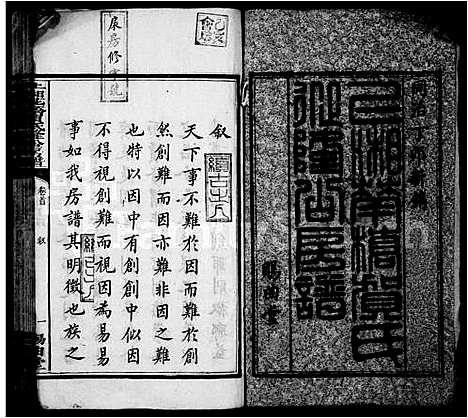 上湘南橋賀氏
迎隆公房譜
賜曲堂
展房修字號
叙
天下事不難於因而難於創
然創難而因亦難非因之難
也特以因中有創創中似因
不得視創難而視因為易易
事如我房譜其明徵也族之
卷首
叙
一
賜曲堂